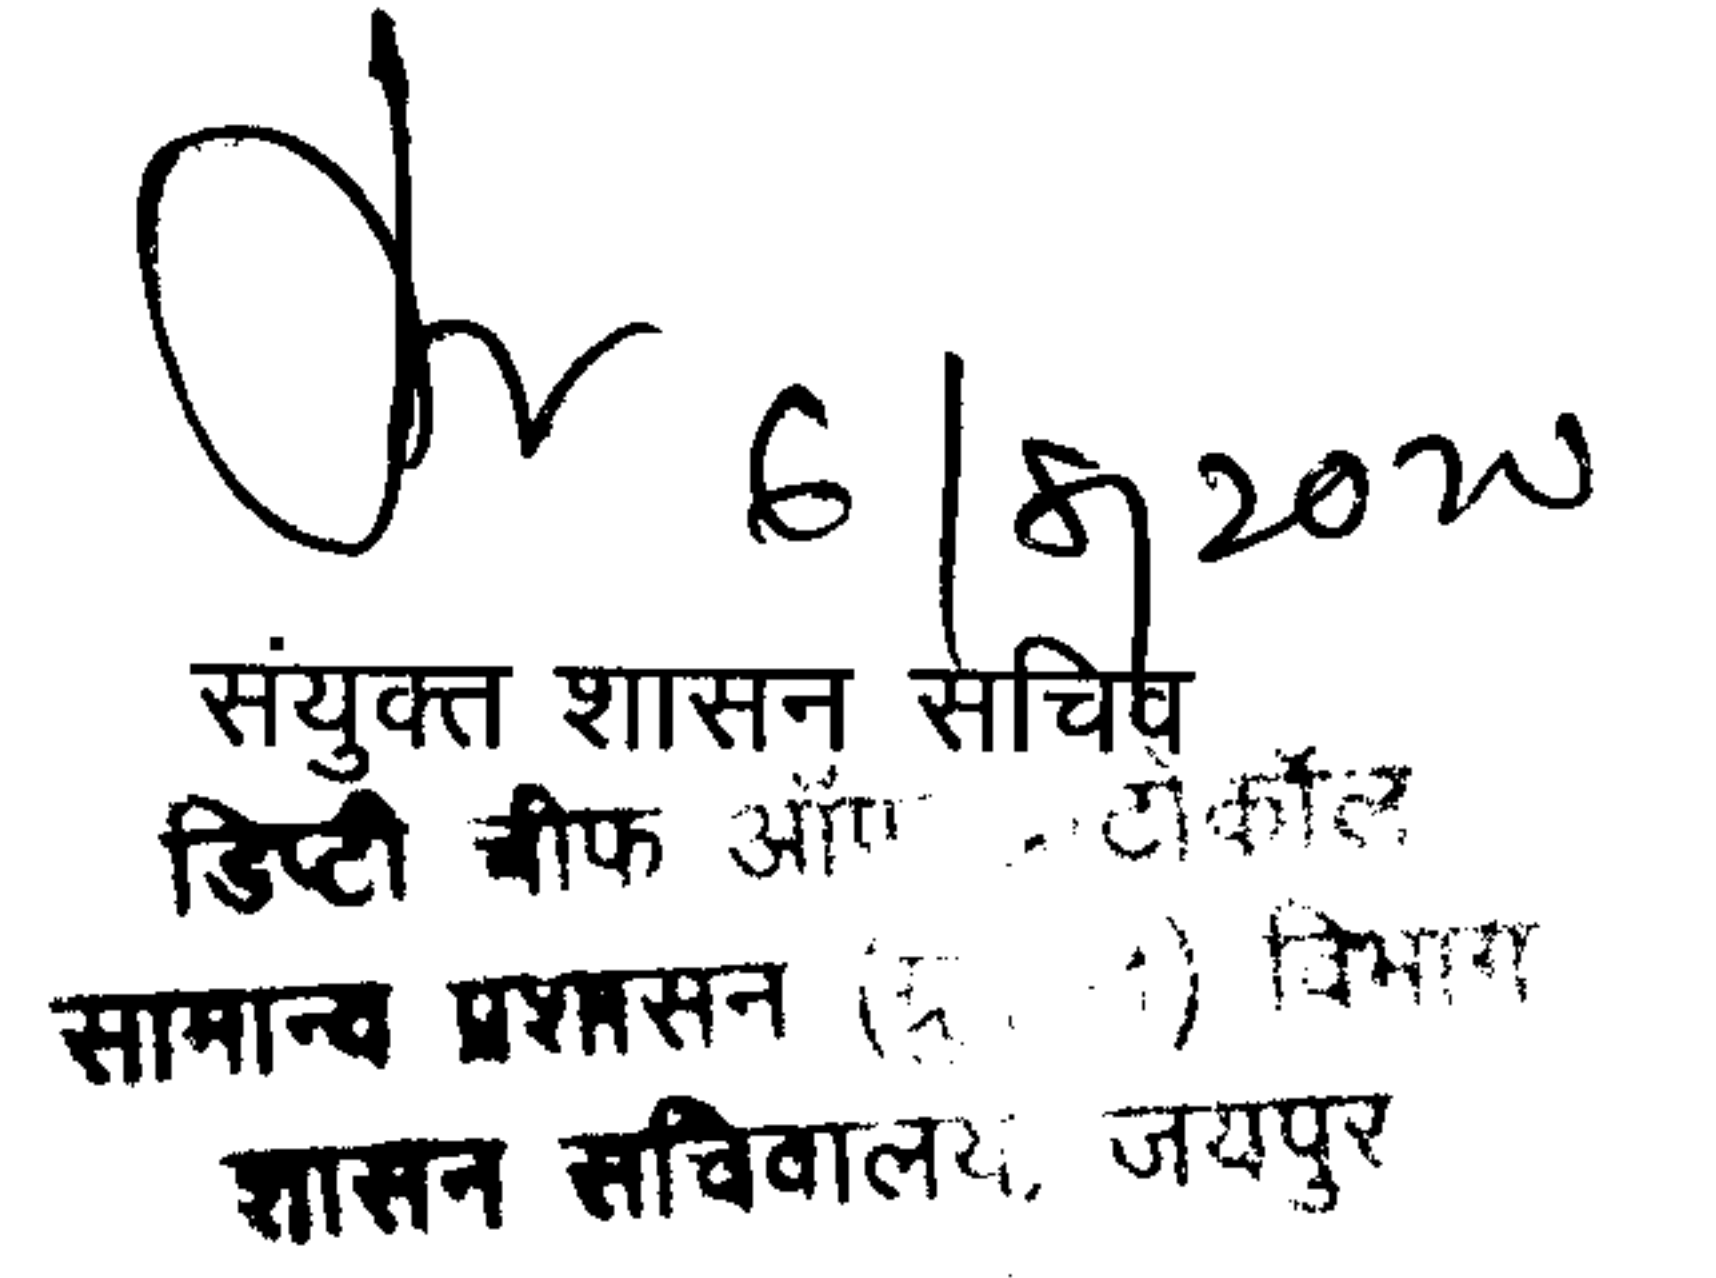 6/8/2020
संयुक्त शासन सचिव
डिप्टी चीफ ऑफ
सामान्य प्रशासन विभाग
शासन सचिवालय, जयपुर